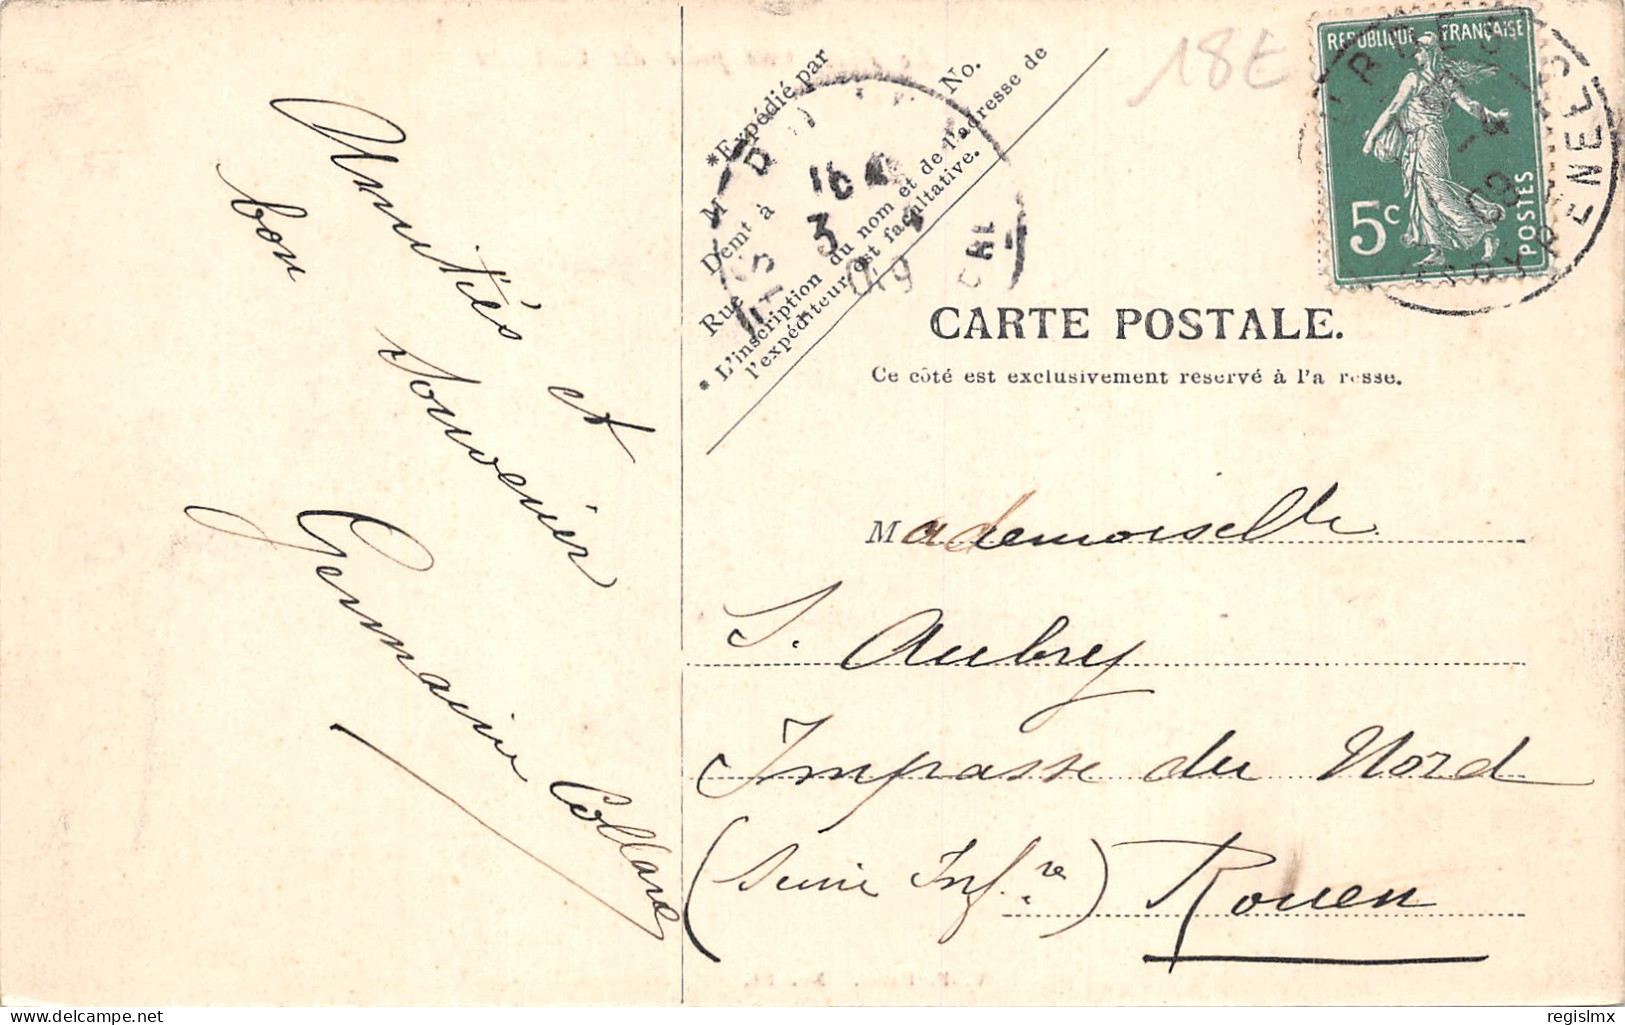 Amitiés et
bon souvenir
Germaine Collard
*Expédié par
No.
Demt à
Rue
* L'inscription du nom et de l'adresse de
l'expéditeur est facultative.
18E
REPUBLIQUE FRANÇAISE
5c
POSTES
09
3
CARTE POSTALE.
Ce côté est exclusivement reservé à l'a resse.
Mademoiselle
S. Aubrey
Impasse du Nord
(Seine Inf.re) Rouen
regislmx